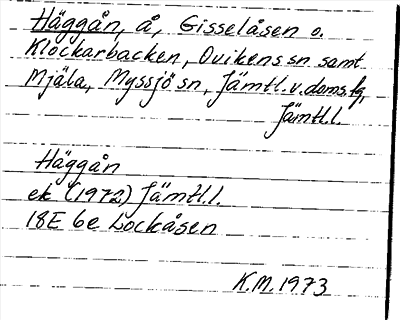 Häggån, å, Gisselåsen o.
Klockarbacken, Ovikens sn samt
Mjäla, Myssjö sn, Jämtl. v. doms. tg,
Jämtl.l.
Häggån
ek (1972) Jämtl.l.
18E 6e Lockåsen
K.M. 1973